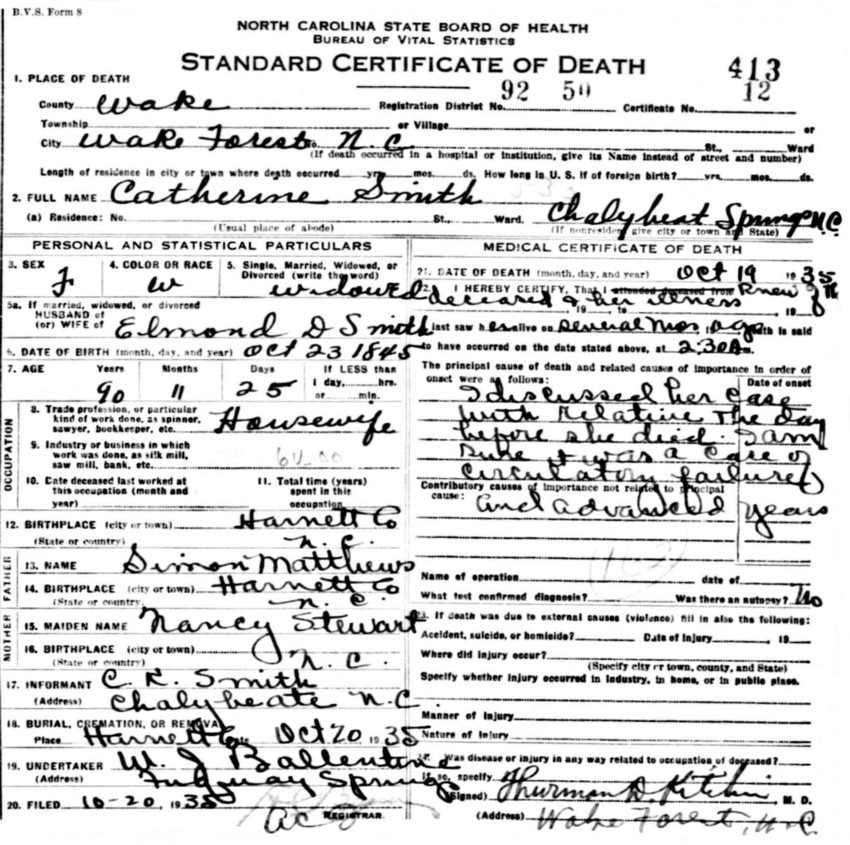 B.V.S. Form 8
NORTH CAROLINA STATE BOARD OF HEALTH
BUREAU OF VITAL STATISTICS
STANDARD CERTIFICATE OF DEATH
413
1. PLACE OF DEATH
County Wake Registration District No. 92 50 Certificate No. 12
Township or Village or
City Wake Forest No. N.C. St., Ward
(If death occurred in a hospital or institution, give its Name instead of street and number)
Length of residence in city or town where death occurred yrs. mos. ds. How long in U. S. if of foreign birth? yrs. mos. ds.
2. FULL NAME Catherine Smith
(a) Residence: No. St., Ward. Chalybeat Springs N.C.
(Usual place of abode) (If nonresident give city or town and State)
PERSONAL AND STATISTICAL PARTICULARS
3. SEX F
4. COLOR OR RACE W
5. Single, Married, Widowed, or Divorced (write the word) Widowed
5a. If married, widowed, or divorced
HUSBAND of
(or) WIFE of Elmond D Smith
6. DATE OF BIRTH (month, day, and year) Oct 23 1845
7. AGE Years Months Days If LESS than
90 11 25 1 day, hrs.
or min.
OCCUPATION
8. Trade profession, or particular
kind of work done, as spinner,
sawyer, bookkeeper, etc. Housewife
9. Industry or business in which
work was done, as silk mill,
saw mill, bank, etc.
10. Date deceased last worked at
this occupation (month and
year)
11. Total time (years)
spent in this
occupation
12. BIRTHPLACE (city or town) Harnett Co
(State or country) N. C.
FATHER
13. NAME Simon Matthews
14. BIRTHPLACE (city or town) Harnett Co
(State or country) N. C.
MOTHER
15. MAIDEN NAME Nancy Stewart
16. BIRTHPLACE (city or town)
(State or country) N. C.
17. INFORMANT C. K. Smith
(Address) Chalybeate N.C.
18. BURIAL, CREMATION, OR REMOVAL
Place Harnett Co Date Oct 20 1935
19. UNDERTAKER W. J. Ballentine
(Address) Fuquay Springs
20. FILED 10-20, 1935
REGISTRAR.
MEDICAL CERTIFICATE OF DEATH
21. DATE OF DEATH (month, day, and year) Oct 19 1935
22. I HEREBY CERTIFY, That I attended deceased from Knew of
deceased & her illness
, 19 , to , 19
I last saw her alive on several mos ago death is said
to have occurred on the date stated above, at 2:30 a m.
The principal cause of death and related causes of importance in order of
onset were as follows: Date of onset
I discussed her case
with relative the day
before she died. I am
sure it was a case of
circulatory failure
Contributory causes of importance not related to principal
cause: and advanced years
Name of operation date of
What test confirmed diagnosis? Was there an autopsy? No
23. If death was due to external causes (violence) fill in also the following:
Accident, suicide, or homicide? Date of injury , 19
Where did injury occur?
(Specify city or town, county, and State)
Specify whether injury occurred in industry, in home, or in public place.
Manner of injury
Nature of injury
Was disease or injury in any way related to occupation of deceased?
If so, specify
(Signed) Thurman D. Kitchin, M. D.
(Address) Wake Forest, N.C.